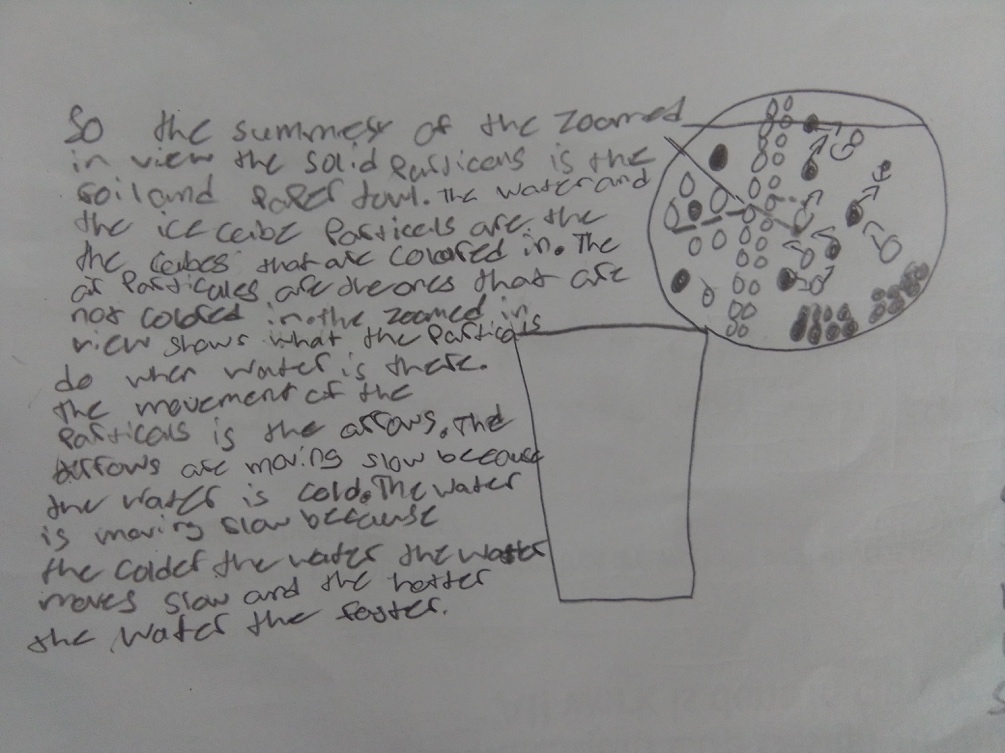 So the summesr of the zoomed
in view the solid Particals is the
soil and Paper towl. The water and
the ice ceibe Particels are the
the ceibes that are colored in. The
air Particules are the ones that are
not colored in. the zoomed in
view shows what the Particals
do when water is there.
the movement of the
Particals is the arrows. The
arrows are moving slow because
the water is cold. The water
is moving slow because
the colder the water the water
moves slow and the hotter
the water the faster.